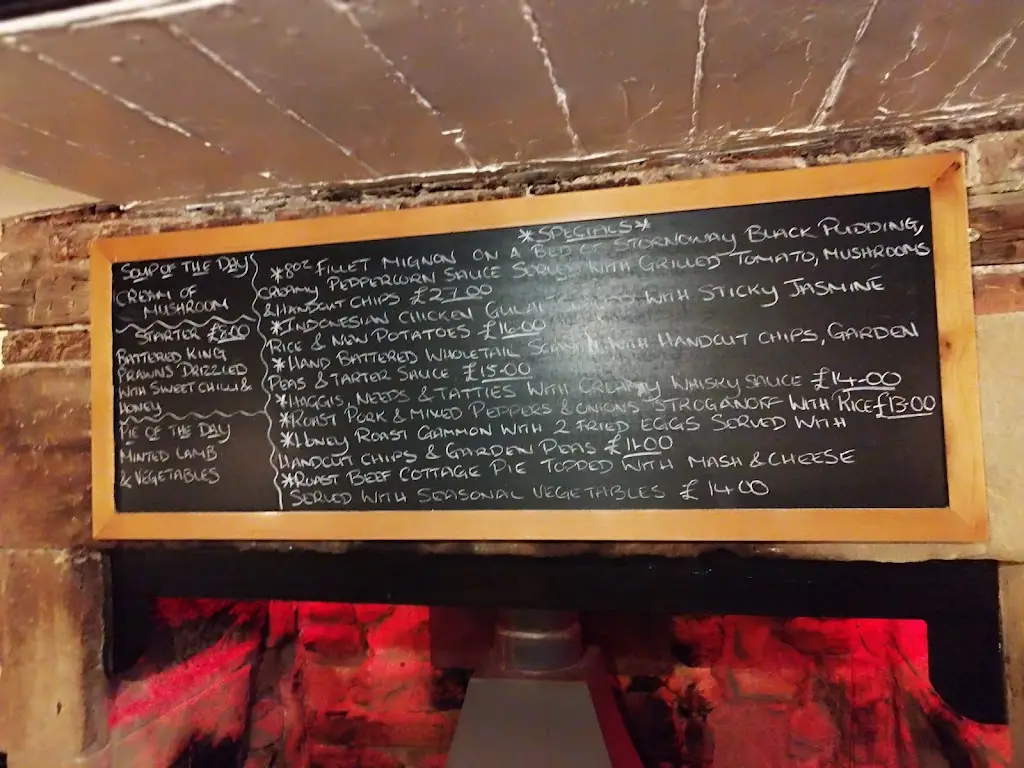 SOUP OF THE DAY
CREAM OF
MUSHROOM
STARTER £8.00
BATTERED KING
PRAWNS DRIZZLED
WITH SWEET CHILLI &
HONEY
PIE OF THE DAY
MINTED LAMB
& VEGETABLES
*SPECIALS*
*8OZ FILLET MIGNON ON A BED OF STORNOWAY BLACK PUDDING,
CREAMY PEPPERCORN SAUCE SERVED WITH GRILLED TOMATO, MUSHROOMS
& HANDCUT CHIPS £27.00
*INDONESIAN CHICKEN WITH STICKY JASMINE
RICE & NEW POTATOES £16.00
*HAND BATTERED WHOLETAIL SCAMPI WITH HANDCUT CHIPS, GARDEN
PEAS & TARTER SAUCE £15.00
*HAGGIS, NEEPS & TATTIES WITH CREAMY WHISKY SAUCE £14.00
*ROAST PORK & MIXED PEPPERS & ONIONS STROGANOFF WITH RICE £13.00
*HONEY ROAST GAMMON WITH 2 FRIED EGGS SERVED WITH
HANDCUT CHIPS & GARDEN PEAS £11.00
*ROAST BEEF COTTAGE PIE TOPPED WITH MASH & CHEESE
SERVED WITH SEASONAL VEGETABLES £14.00